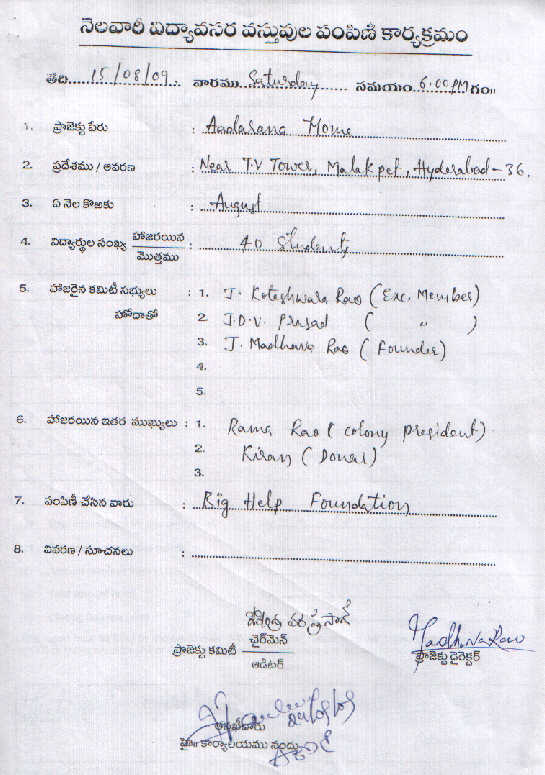 నెలవారీ విద్యావసర వస్తువుల పంపిణి కార్యక్రమం
తేది..... 15/08/09 .. వారము Saturday ...... సమయం 6.00 PM గం॥
1. ప్రాజెక్టు పేరు : Aadarana Home
2. ప్రదేశము / ఆవరణ : Near T.V Tower, Malakpet, Hyderabad - 36.
3. ఏ నెల కొఱకు : August
4. విద్యార్థుల సంఖ్య హాజరయిన / మొత్తము : 40 Students
5. హాజరైన కమిటీ సభ్యులు : 1. J. Koteshwara Rao (Exc. Member)
హోదాతో 2. J.D.V. Prasad ( " )
3. J. Madhava Rao (Founder)
4.
5.
6. హాజరయిన ఇతర ముఖ్యులు : 1. Rama Rao (colony president)
2. Kiran (Donar)
3.
7. పంపిణీ చేసిన వారు : Big Help Foundation
8. వివరణ / సూచనలు :
ప్రాజెక్టు కమిటీ ఛైర్‌మెన్ / ఆడిటర్
Madhava Rao
ప్రాజెక్టు డైరెక్టర్
కార్యాలయము